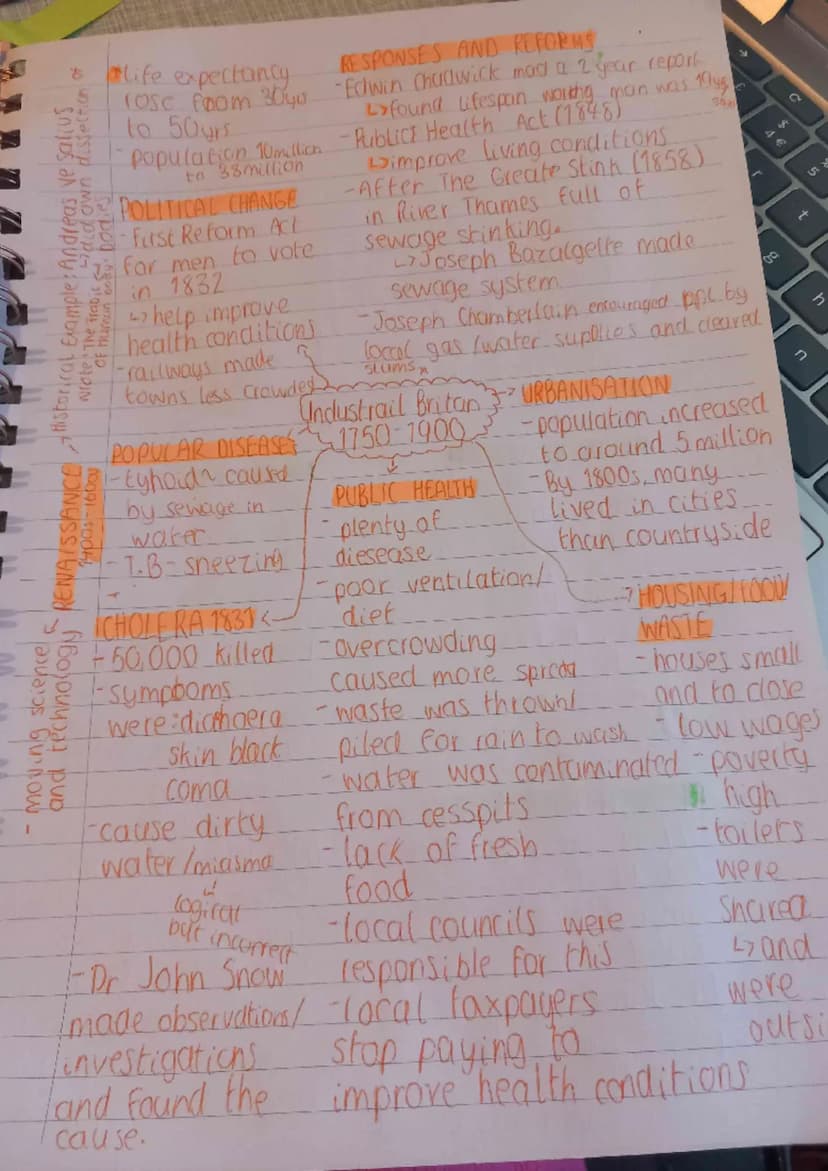 life expectancy
rose from 30yrs
to 50yrs
- population 10million
to 38million
POLITICAL CHANGE
- first Reform Act
for men to vote
in 1832
↳ help improve
health conditions
- railways made
towns less crowded
RESPONSES AND REFORMS
- Edwin Chadwick mad a 2 year report
↳ found lifespan man was
- Public Health Act (1848)
↳ improve living conditions
- After The Greate Stink (1858)
in River Thames full of
sewage stinking.
↳ Joseph Bazalgette made
sewage system
- Joseph Chamberlain encouraged ppl by
local gas/water supplies and cleared
slums
Industrail Britan
1750-1900
POPULAR DISEASES
- tyhoid caused
by sewage in
water
- T.B - sneezing
-
CHOLERA 1831
- 50,000 killed
- symptoms
were: diarhoera
skin black
coma
- cause dirty
water/miasma
logicall
but incorrect
- Dr John Snow
made observations/
investigations
and found the
cause.
PUBLIC HEALTH
- plenty of
diesease
- poor ventilation/
diet
- overcrowding
caused more spread
- waste was thrown/
piled for rain to wash
- water was contaminated
from cesspits
- lack of fresh
food
- local councils were
responsible for this
- local taxpayers
stop paying to
improve health conditions
URBANISATION
- population increased
to around 5 million
- By 1800s, many
lived in cities
than countryside
HOUSING/FOOD/
WASTE
- houses small
and to close
- low wages
- poverty
high
- toilers
were
shared
↳ and
were
outsi
RENAISSANCE
1400s-1600s
- moving science
and technology
→ Historical Example: Andreas vesalius
↳ did own dissection of
bodies
Wrote 'The Fabric
of Human Body'